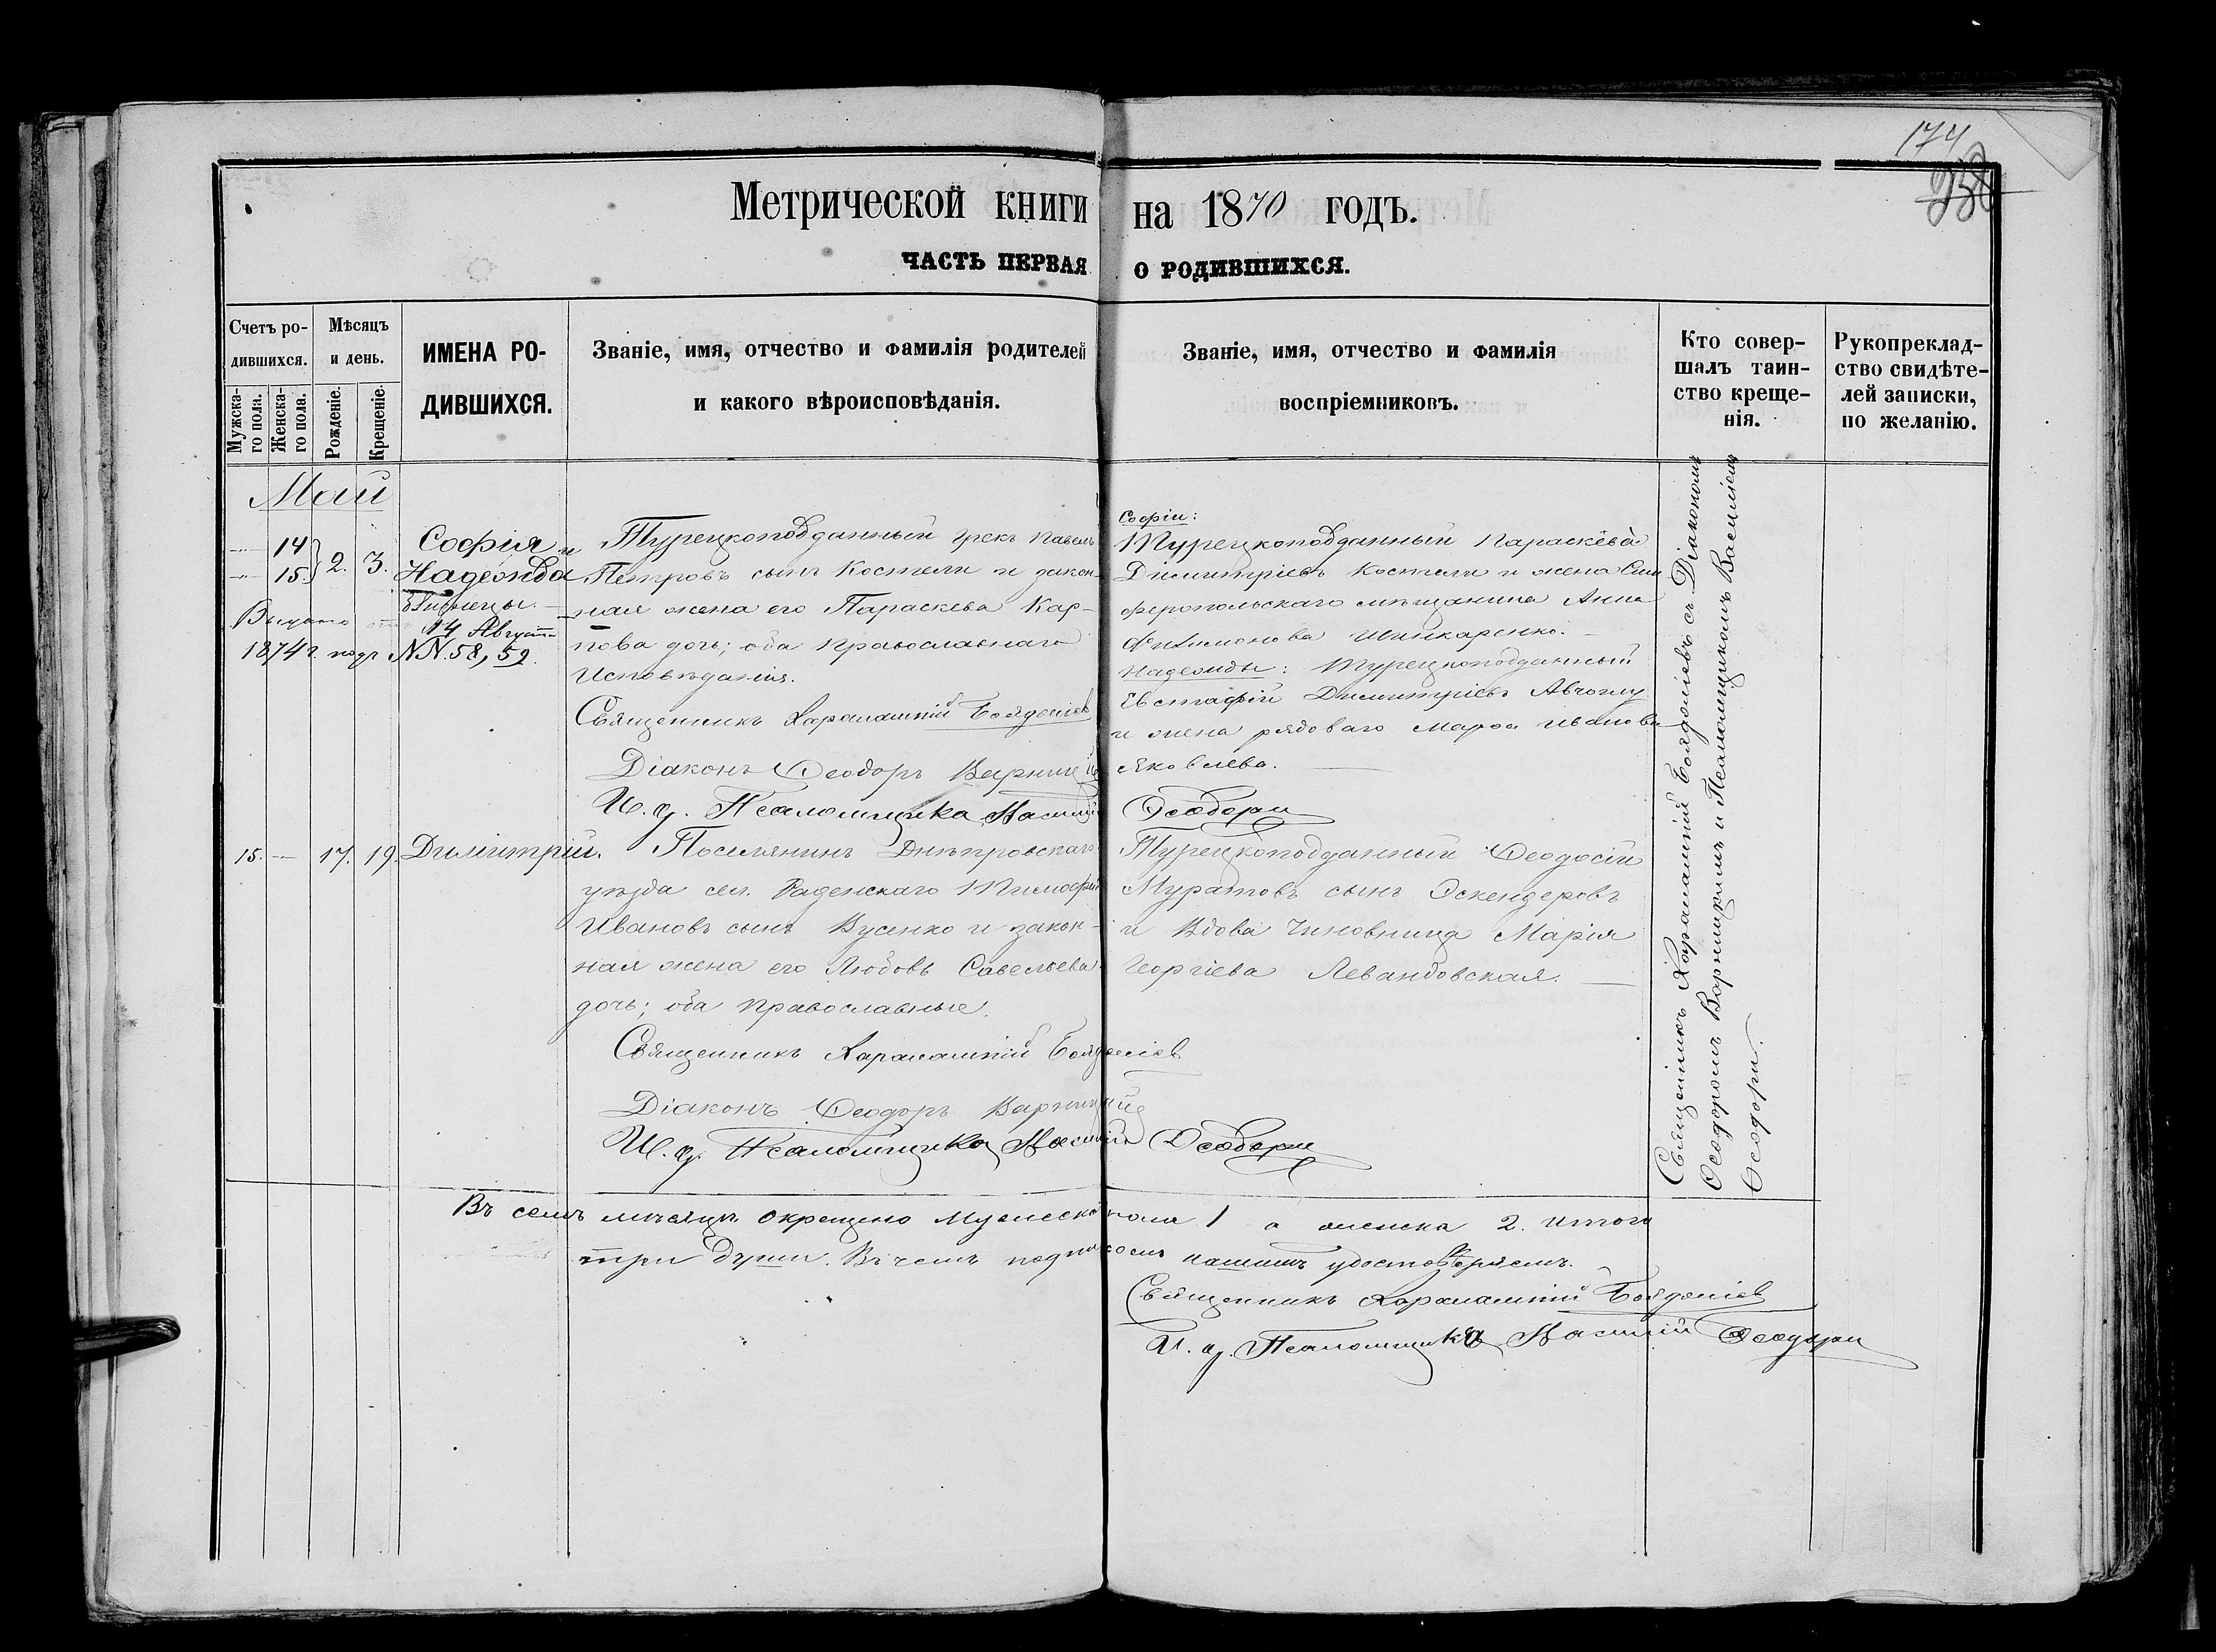 174
258
Метрической книги на 1870 годъ.
ЧАСТЬ ПЕРВАЯ О РОДИВШИХСЯ.
Счетъ ро-
дившихся.
Мужска-
го пола.
Женска-
го пола.
Мѣсяцъ
и день.
Рожденіе.
Крещеніе.
ИМЕНА РО-
ДИВШИХСЯ.
Званіе, имя, отчество и фамилія родителей
и какого вѣроисповѣданія.
Званіе, имя, отчество и фамилія
воспріемниковъ.
Кто совер-
шалъ таин-
ство креще-
нія.
Рукопреклад-
ство свидѣте-
лей записки,
по желанію.
Май
14
15
2. 3.
Софія и
Надежда
близнецы.
Выдано 14 Августа
1874 г. подъ NN. 58, 59.
Турецкоподданный грекъ Павелъ
Петровъ сынъ Костели и закон-
ная жена его Параскева Кар-
пова дочь; оба православнаго
Исповѣданія.
Священникъ Харалампій Бояджіевъ
Діаконъ Ѳеодоръ Варницкій
И. д. Псаломщика Василій Ѳеодори
Софіи:
Турецкоподданный Параскева
Димитріевъ Костели и жена Сим-
феропольскаго мѣщанина Анна
Филимонова Шинкаренко.
Надежды: Турецкоподданный
Евстафій Димитріевъ
и жена рядоваго Марѳа Иванова
Яковлева.
15. — 17. 19. Димитрій.
Поселянинъ Днѣпровскаго
уѣзда сел. Раденскаго Тимофей
Ивановъ сынъ Бусенко и закон-
ная жена его Любовь Савельева
дочь; оба православные.
Священникъ Харалампій Бояджіевъ
Діаконъ Ѳеодоръ Варницкій
И. д. Псаломщика Василій Ѳеодори
Турецкоподданный Ѳеодосій
Муратовъ сынъ Эскендеровъ
и Вдова Чиновница Марія
Георгіева Левандовская.
Священникъ Харалампій Бояджіевъ съ Діакономъ
Ѳеодоромъ Варницкимъ и Псаломщикомъ Василіемъ
Ѳеодори.
Въ семъ мѣсяцѣ окрещено Мужеска пола 1 а женска 2. итого
три души. Въ чемъ подписомъ нашимъ удостовѣряемъ.
Священникъ Харалампій Бояджіевъ
И. д. Псаломщика Василій Ѳеодори